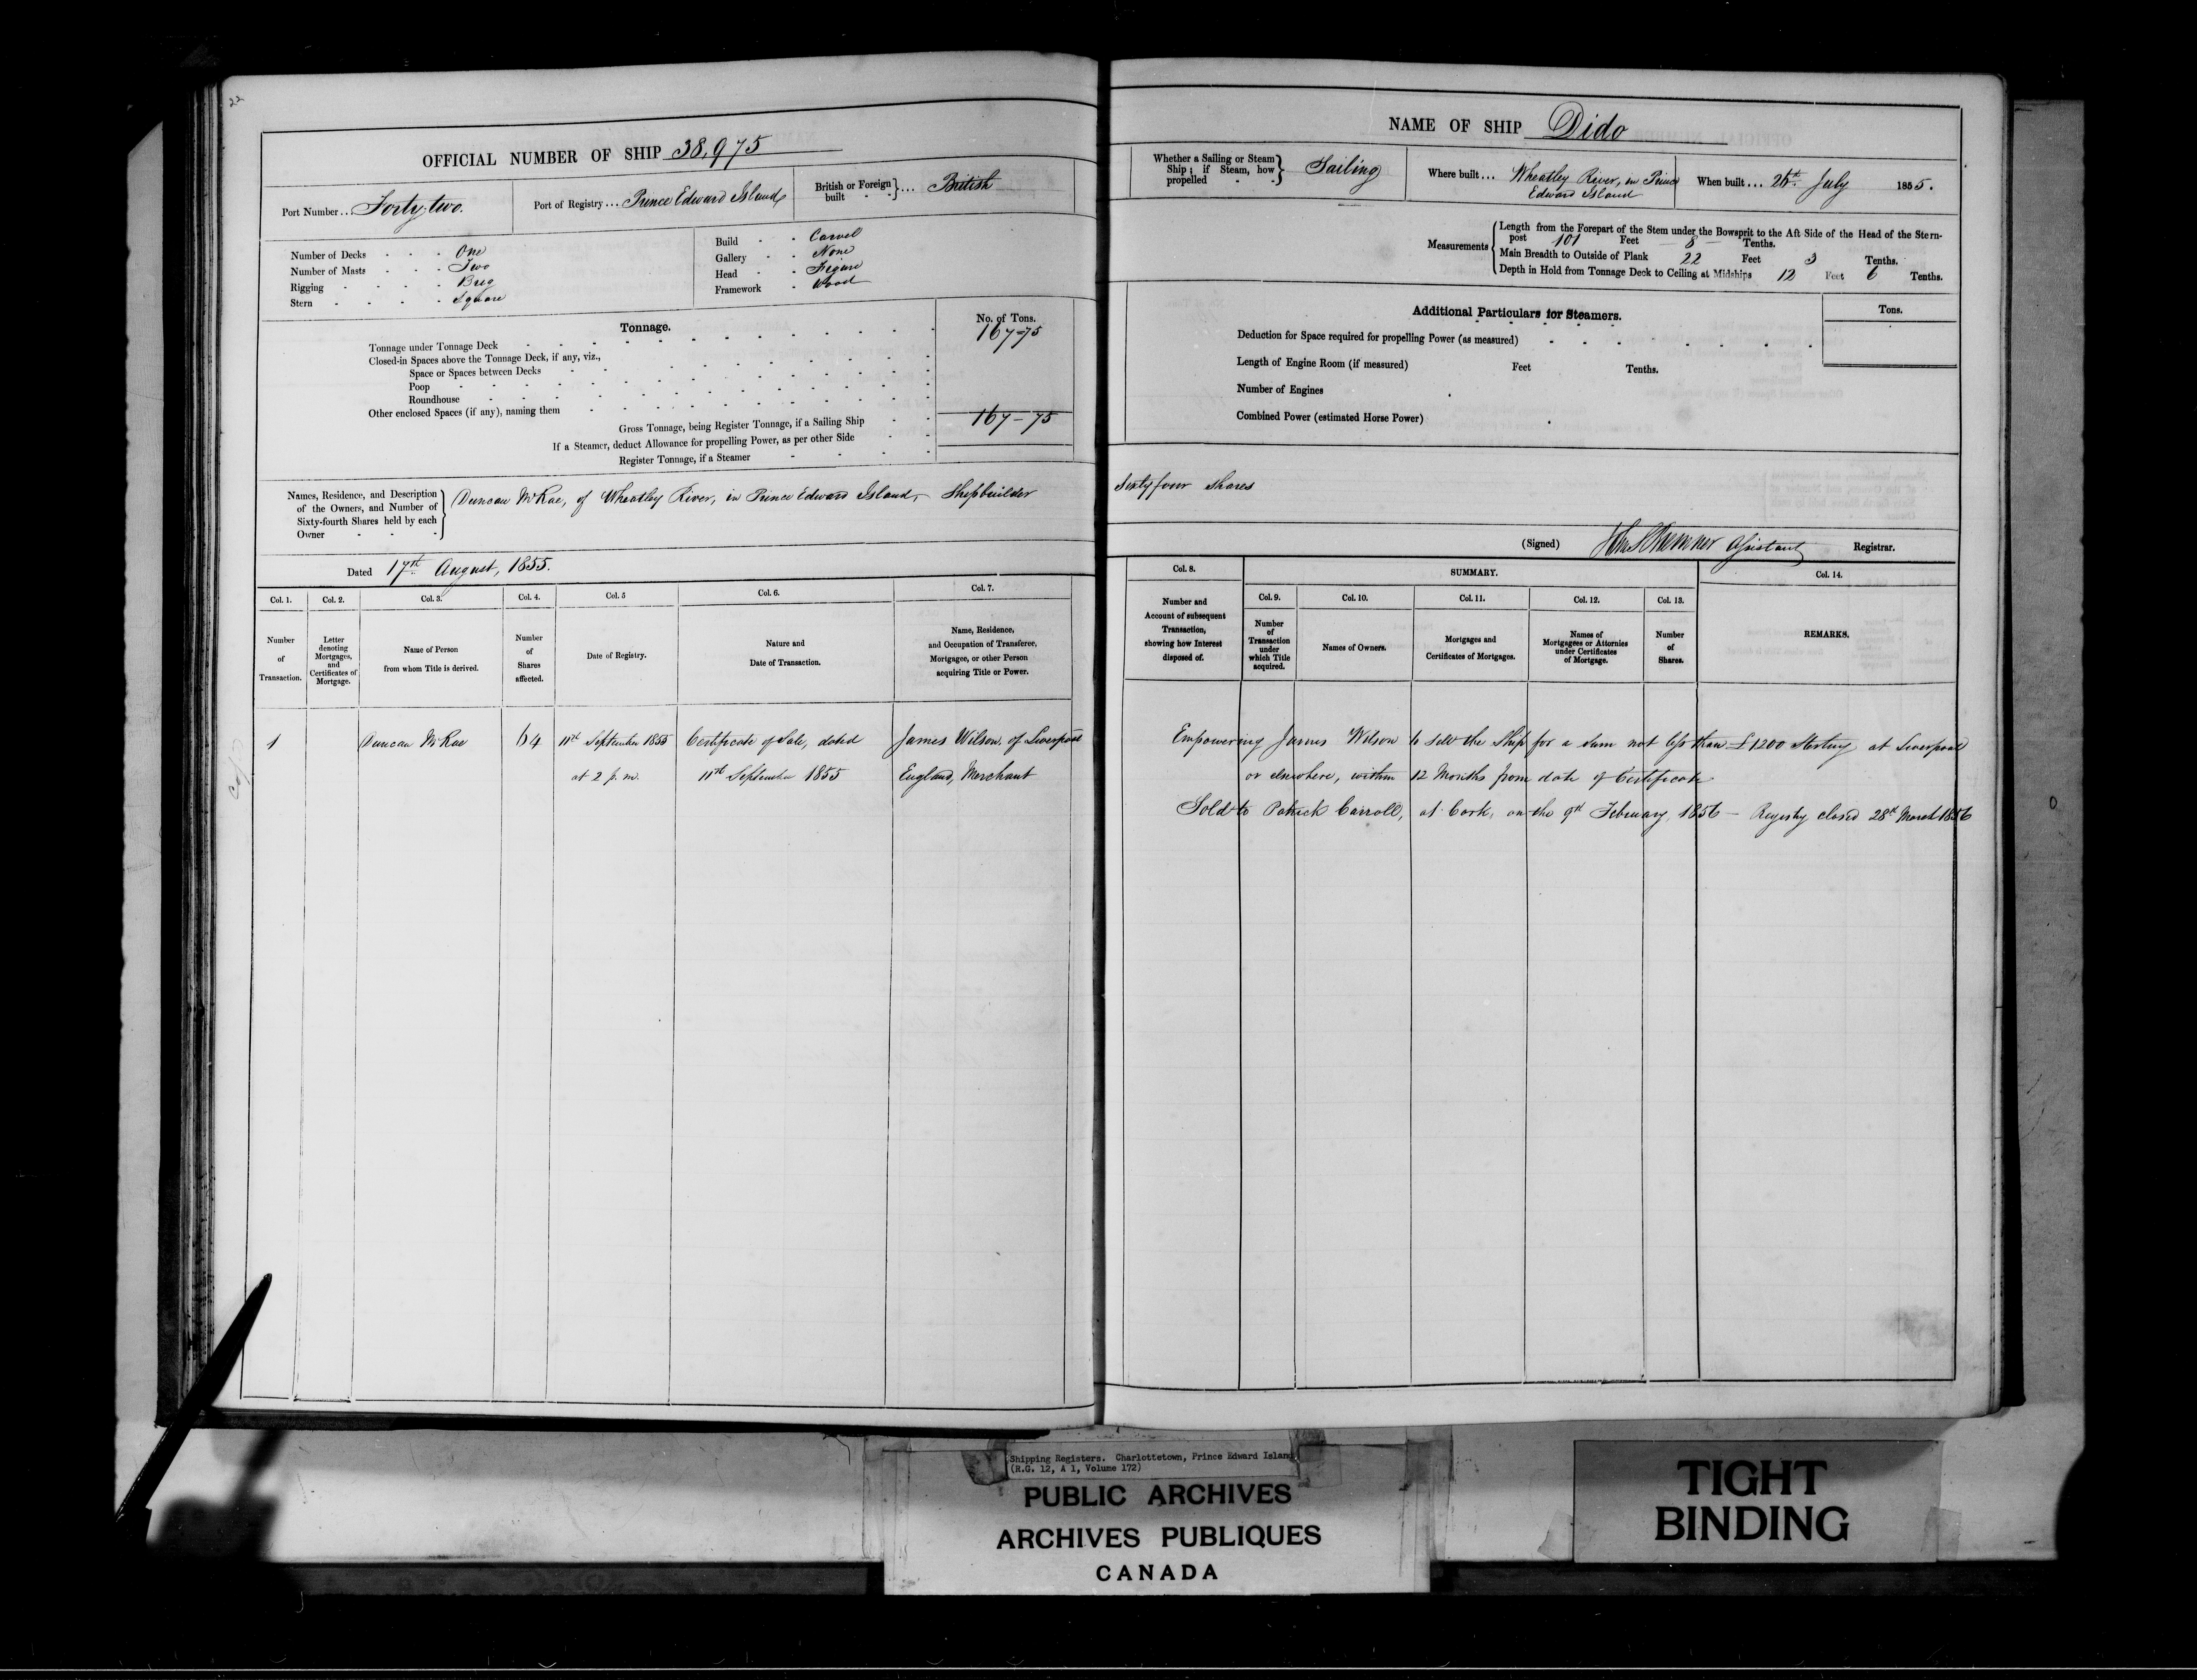 22
OFFICIAL NUMBER OF SHIP 38,975
Port Number ... Forty two.
Port of Registry ... Prince Edward Island
British or Foreign built - - } ... British
Number of Decks - - - One
Number of Masts - - - Two
Rigging - - - - Brig
Stern - - - - Square
Build - - Carvel
Gallery - - None
Head - - Figure
Framework - Wood
Tonnage.
No. of Tons.
Tonnage under Tonnage Deck 167-75
Closed-in Spaces above the Tonnage Deck, if any, viz.,
Space or Spaces between Decks
Poop
Roundhouse
Other enclosed Spaces (if any), naming them
Gross Tonnage, being Register Tonnage, if a Sailing Ship 167-75
If a Steamer, deduct Allowance for propelling Power, as per other Side
Register Tonnage, if a Steamer
Names, Residence, and Description
of the Owners, and Number of
Sixty-fourth Shares held by each
Owner - - -
Duncan McRae, of Wheatley River, in Prince Edward Island, Shipbuilder
Dated 17th August, 1855.
Col. 1. Col. 2. Col. 3. Col. 4. Col. 5 Col. 6. Col. 7.
Number of Transaction.
Letter denoting Mortgages, and Certificates of Mortgage.
Name of Person from whom Title is derived.
Number of Shares affected.
Date of Registry.
Nature and Date of Transaction.
Name, Residence, and Occupation of Transferee, Mortgagee, or other Person acquiring Title or Power.
1 Duncan McRae 64 11th September 1855 Certificate of Sale, dated James Wilson, of Liverpool
at 2 p.m. 11th September 1855 England, Merchant
NAME OF SHIP Dido
Whether a Sailing or Steam Ship; if Steam, how propelled - - } Sailing
Where built ... Wheatley River, in Prince
Edward Island
When built ... July 1855.
Measurements
Length from the Forepart of the Stem under the Bowsprit to the Aft Side of the Head of the Stern-
post 101 Feet 8 Tenths.
Main Breadth to Outside of Plank 22 Feet 3 Tenths.
Depth in Hold from Tonnage Deck to Ceiling at Midships 12 Feet 6 Tenths.
Additional Particulars for Steamers.
Tons.
Deduction for Space required for propelling Power (as measured)
Length of Engine Room (if measured) Feet Tenths.
Number of Engines
Combined Power (estimated Horse Power)
Sixty four shares
(Signed) Assistant Registrar.
Col. 8. SUMMARY. Col. 14.
Col. 9. Col. 10. Col. 11. Col. 12. Col. 13.
Number and Account of subsequent Transaction, showing how Interest disposed of.
Number of Transaction under which Title acquired.
Names of Owners.
Mortgages and Certificates of Mortgages.
Names of Mortgagees or Attornies under Certificates of Mortgage.
Number of Shares.
REMARKS.
Empowering James Wilson to sell the Ship for a sum not less than £1200 Sterling at Liverpool
or elsewhere, within 12 Months from date of Certificate
Sold to Patrick Carroll, at Cork, on the 9th February, 1856 — Registry closed 28th March 1856
Shipping Registers. Charlottetown, Prince Edward Island
(R.G. 12, A 1, Volume 172)
PUBLIC ARCHIVES
ARCHIVES PUBLIQUES
CANADA
TIGHT
BINDING